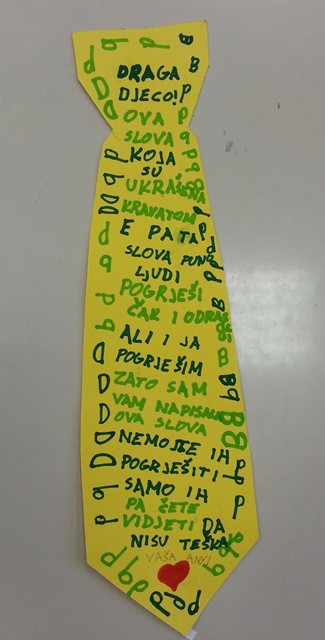 DRAGA
DJECO!
OVA
SLOVA
KOJA
SU
UKRAŠENA
KRAVATOM
E PA TA
SLOVA PUNO
LJUDI
POGRJEŠI
ČAK I ODRASLI
ALI I JA
POGRJEŠIM
ZATO SAM
VAM NAPISALA
OVA SLOVA
NEMOJTE IH
POGRJEŠITI
SAMO IH
PA ČETE
VIDJETI DA
NISU TEŠKA
VAŠA ANYI